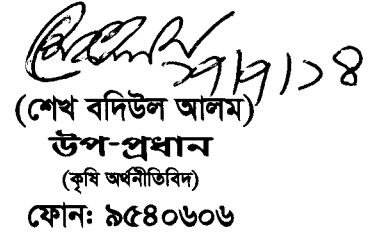 (শেখ বদিউল আলম)
উপ-প্রধান
(কৃষি অর্থনীতিবিদ)
ফোন: ৯৫৪০৬০৬